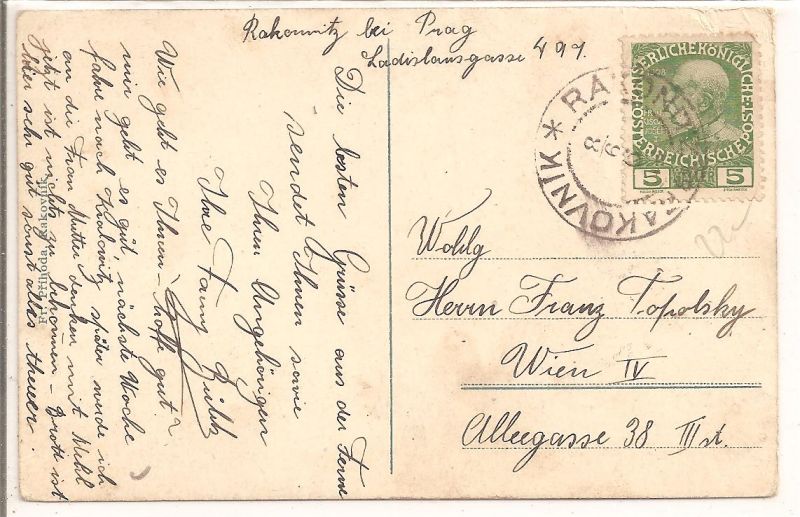 Rakonitz bei Prag
Ladislausgasse 497.
Die besten Grüsse aus der Ferne
sendet Ihnen sowie
Ihren Angehörigen
Ihre Fanny
Wie geht es Ihnen – hoffe gut?
mir geht es gut, nächste Woche
fahre nach Kralowitz später werde ich
an die Frau Mutter denken mit Mehl
jetzt ist nichts zu bekommen – Brott ist
hier sehr gut sonst alles theuer.
KAISERLICHE KÖNIGLICHE ÖSTERREICHISCHE POST
1908
5 HELLER 5
RAKONITZ * RAKOVNIK
Wohlg
Herrn Franz Topolsky
Wien IV
Alleegasse 38 III st.